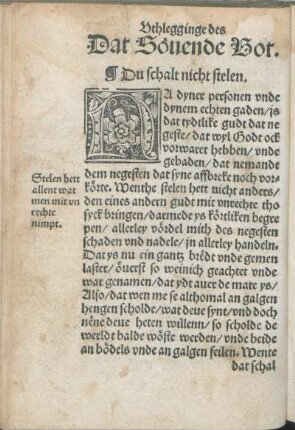 Uthlegginge des
Dat Söuende Bot.
¶ Du schalt nicht stelen.
NA dyner personen vnde
dynem echten gaden/ is
dat tydtlike gudt dat ne
geste/ dat wyl Godt ock
vorwaret hebben/ vnde
gebaden/ dat nemandt
dem negesten dat syne affbreke noch vor-
körte. Wenthe stelen hett nicht anders/
den eines andern gudt mit vnrechte tho
syck bringen/ darmede ys körtliken begre
pen/ allerley vördel mith des negesten
schaden vnd nadele/ jn allerley handeln.
Dat ys nu ein gantz brödt vnde gemen
laster/ öuerst so weinich geachtet vnde
war genamen/ dat ydt auer de mate ys/
Also/ dat wen me se althomal an galgen
hengen scholde/ wat deue synt/ vnd doch
nêne deue heten willenn/ so scholde de
werldt balde wöste werden/ vnde beide
an bödels vnde an galgen feilen. Wente
dat schal
Stelen hett
allent wat
men mit vn
rechte
nimpt.